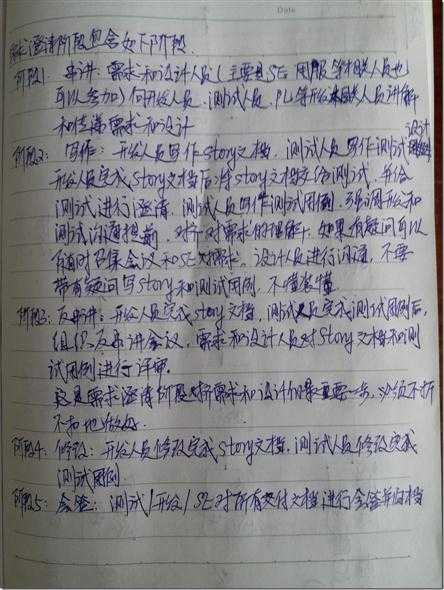 Date
需求澄清阶段包含如下阶段.
阶段1: 串讲: 需求和设计人员(主要是SE 周服等相关人员也
可以参加)向开发人员、测试人员、PL等开发相关人员讲解
和传递需求和设计
阶段2: 写作: 开发人员写作Story文档, 测试人员写作测试设计
开发人员完成Story文档后将story文档交给测试, 并给
测试进行澄清, 测试人员写作测试用例, 强调开发和
测试沟通提前, 对齐对需求的理解, 如果有疑问可以
随时召集会议和SE对需求、设计人员进行沟通, 不要
带有疑问写Story和测试用例, 不懂装懂.
阶段3: 反串讲: 开发人员完成story文档, 测试人员完成测试用例后,
组织反串讲会议, 需求和设计人员对Story文档和测
试用例进行评审.
这是需求澄清阶段对齐需求和设计的最重要一步, 必须不折
不扣地做好.
阶段4: 修改: 开发人员修改完成story文档, 测试人员修改完成
测试用例
阶段5: 会签: 测试/开发/SE对所有交付文档进行会签并归档